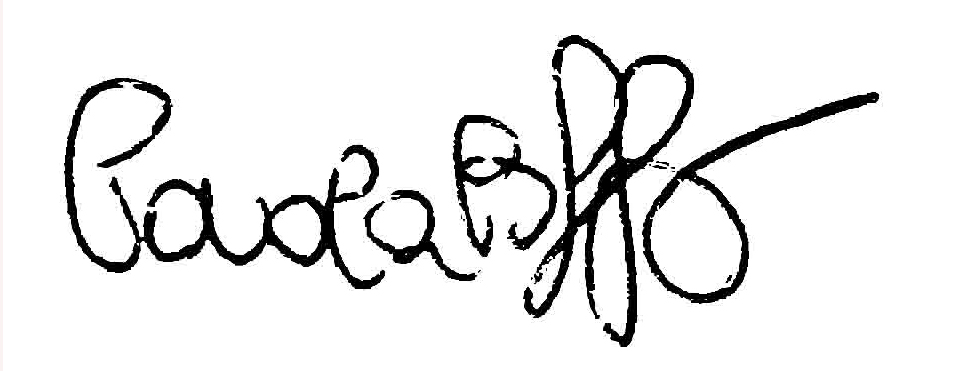 Paola Boffo